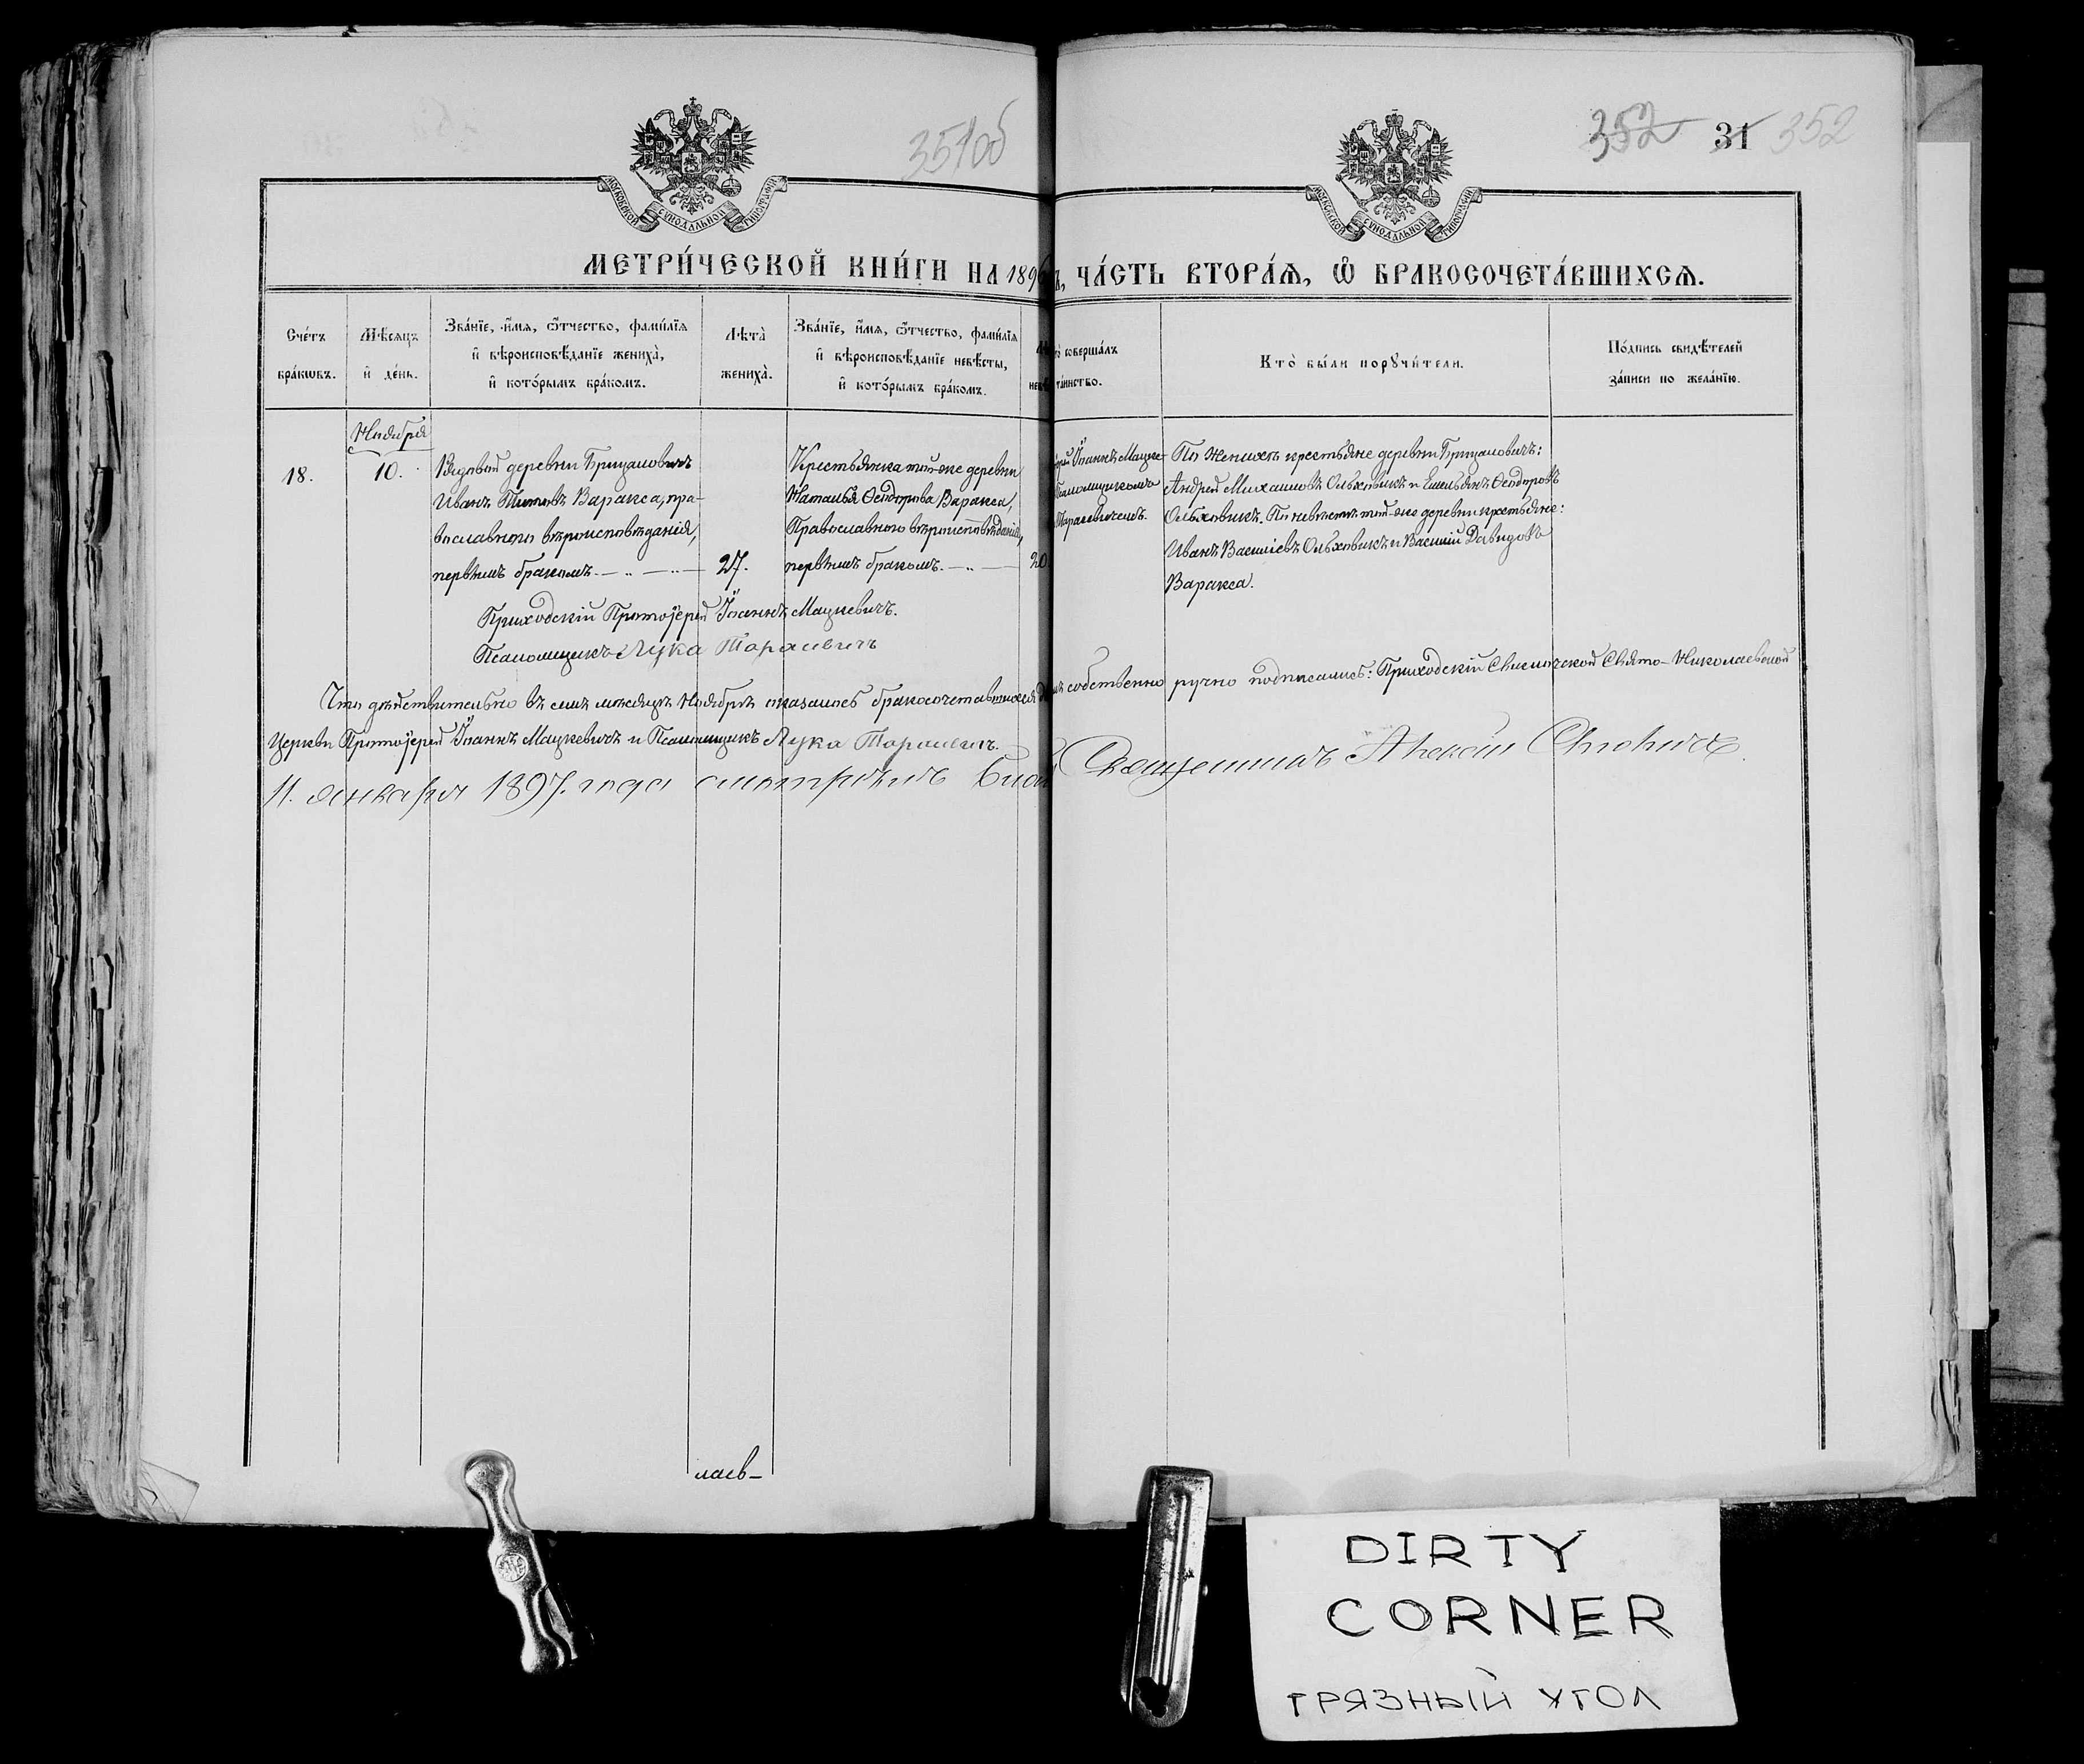 351об
352 31 352
МОСКОВСКОЙ СУНОДАЛЬНОЙ ТИПОГРАФІИ
МОСКОВСКОЙ СУНОДАЛЬНОЙ ТИПОГРАФІИ
МЕТРИ́ЧЕСКОЙ КНИ́ГИ НА 1896
, ЧА́СТЬ ВТОРА́Ѧ, Ѿ БРАКОСОЧЕТА́ВШИХСѦ.
Сче́тъ
бра́кѡвъ.
Мѣ́сѧцъ
и҆ де́нь.
Зва́нїе, и҆́мѧ, ѻ҆́тчество, фами́лїѧ
и҆ вѣроисповѣ́данїе жениха̀,
и҆ кото́рымъ бра́комъ.
Лѣта̀
жениха̀.
Зва́нїе, и҆́мѧ, ѻ҆́тчество, фами́лїѧ
и҆ вѣроисповѣ́данїе невѣ́сты,
и҆ кото́рымъ бра́комъ.
соверша́лъ
та́инство.
Кто̀ бы́ли порꙋчи́тели.
По́дпись свидѣ́телей
за́писи по жела́нїю.
Ноября
18.
10.
деревни
Иванъ Титовъ Варакса, пра-
вославнаго вѣроисповѣданія,
первымъ бракомъ.
27.
Крестьянка той-же деревни
Наталья Ѳеодорова Варакса,
Православнаго вѣроисповѣданія,
первымъ бракомъ.
20
Іоаннъ Мацке-
Псаломщикомъ
Тарасевичемъ.
По женихѣ крестьяне деревни
Андрей Михаиловъ Ольховикъ и Емельянъ Ѳеодоровъ
Ольховикъ. По невѣстѣ той-же деревни крестьяне:
Иванъ Василіевъ Ольховикъ и Василій Давидовъ
Варакса.
Приходскій Протоіерей Іоаннъ Мацкевичъ.
Псаломщикъ Лука Тарасевичъ
Что дѣйствительно въ семъ мѣсяцѣ Ноябрѣ оказалось бракосочетавшихся собственно ручно подписались: Приходскій Свято-Николаевской
Церкви Протоіерей Іоаннъ Мацкевичъ и Псаломщикъ Лука Тарасевичъ.
11. января 1897. года Священникъ Алексій
лаев-
DIRTY
CORNER
ГРЯЗНЫЙ УГОЛ